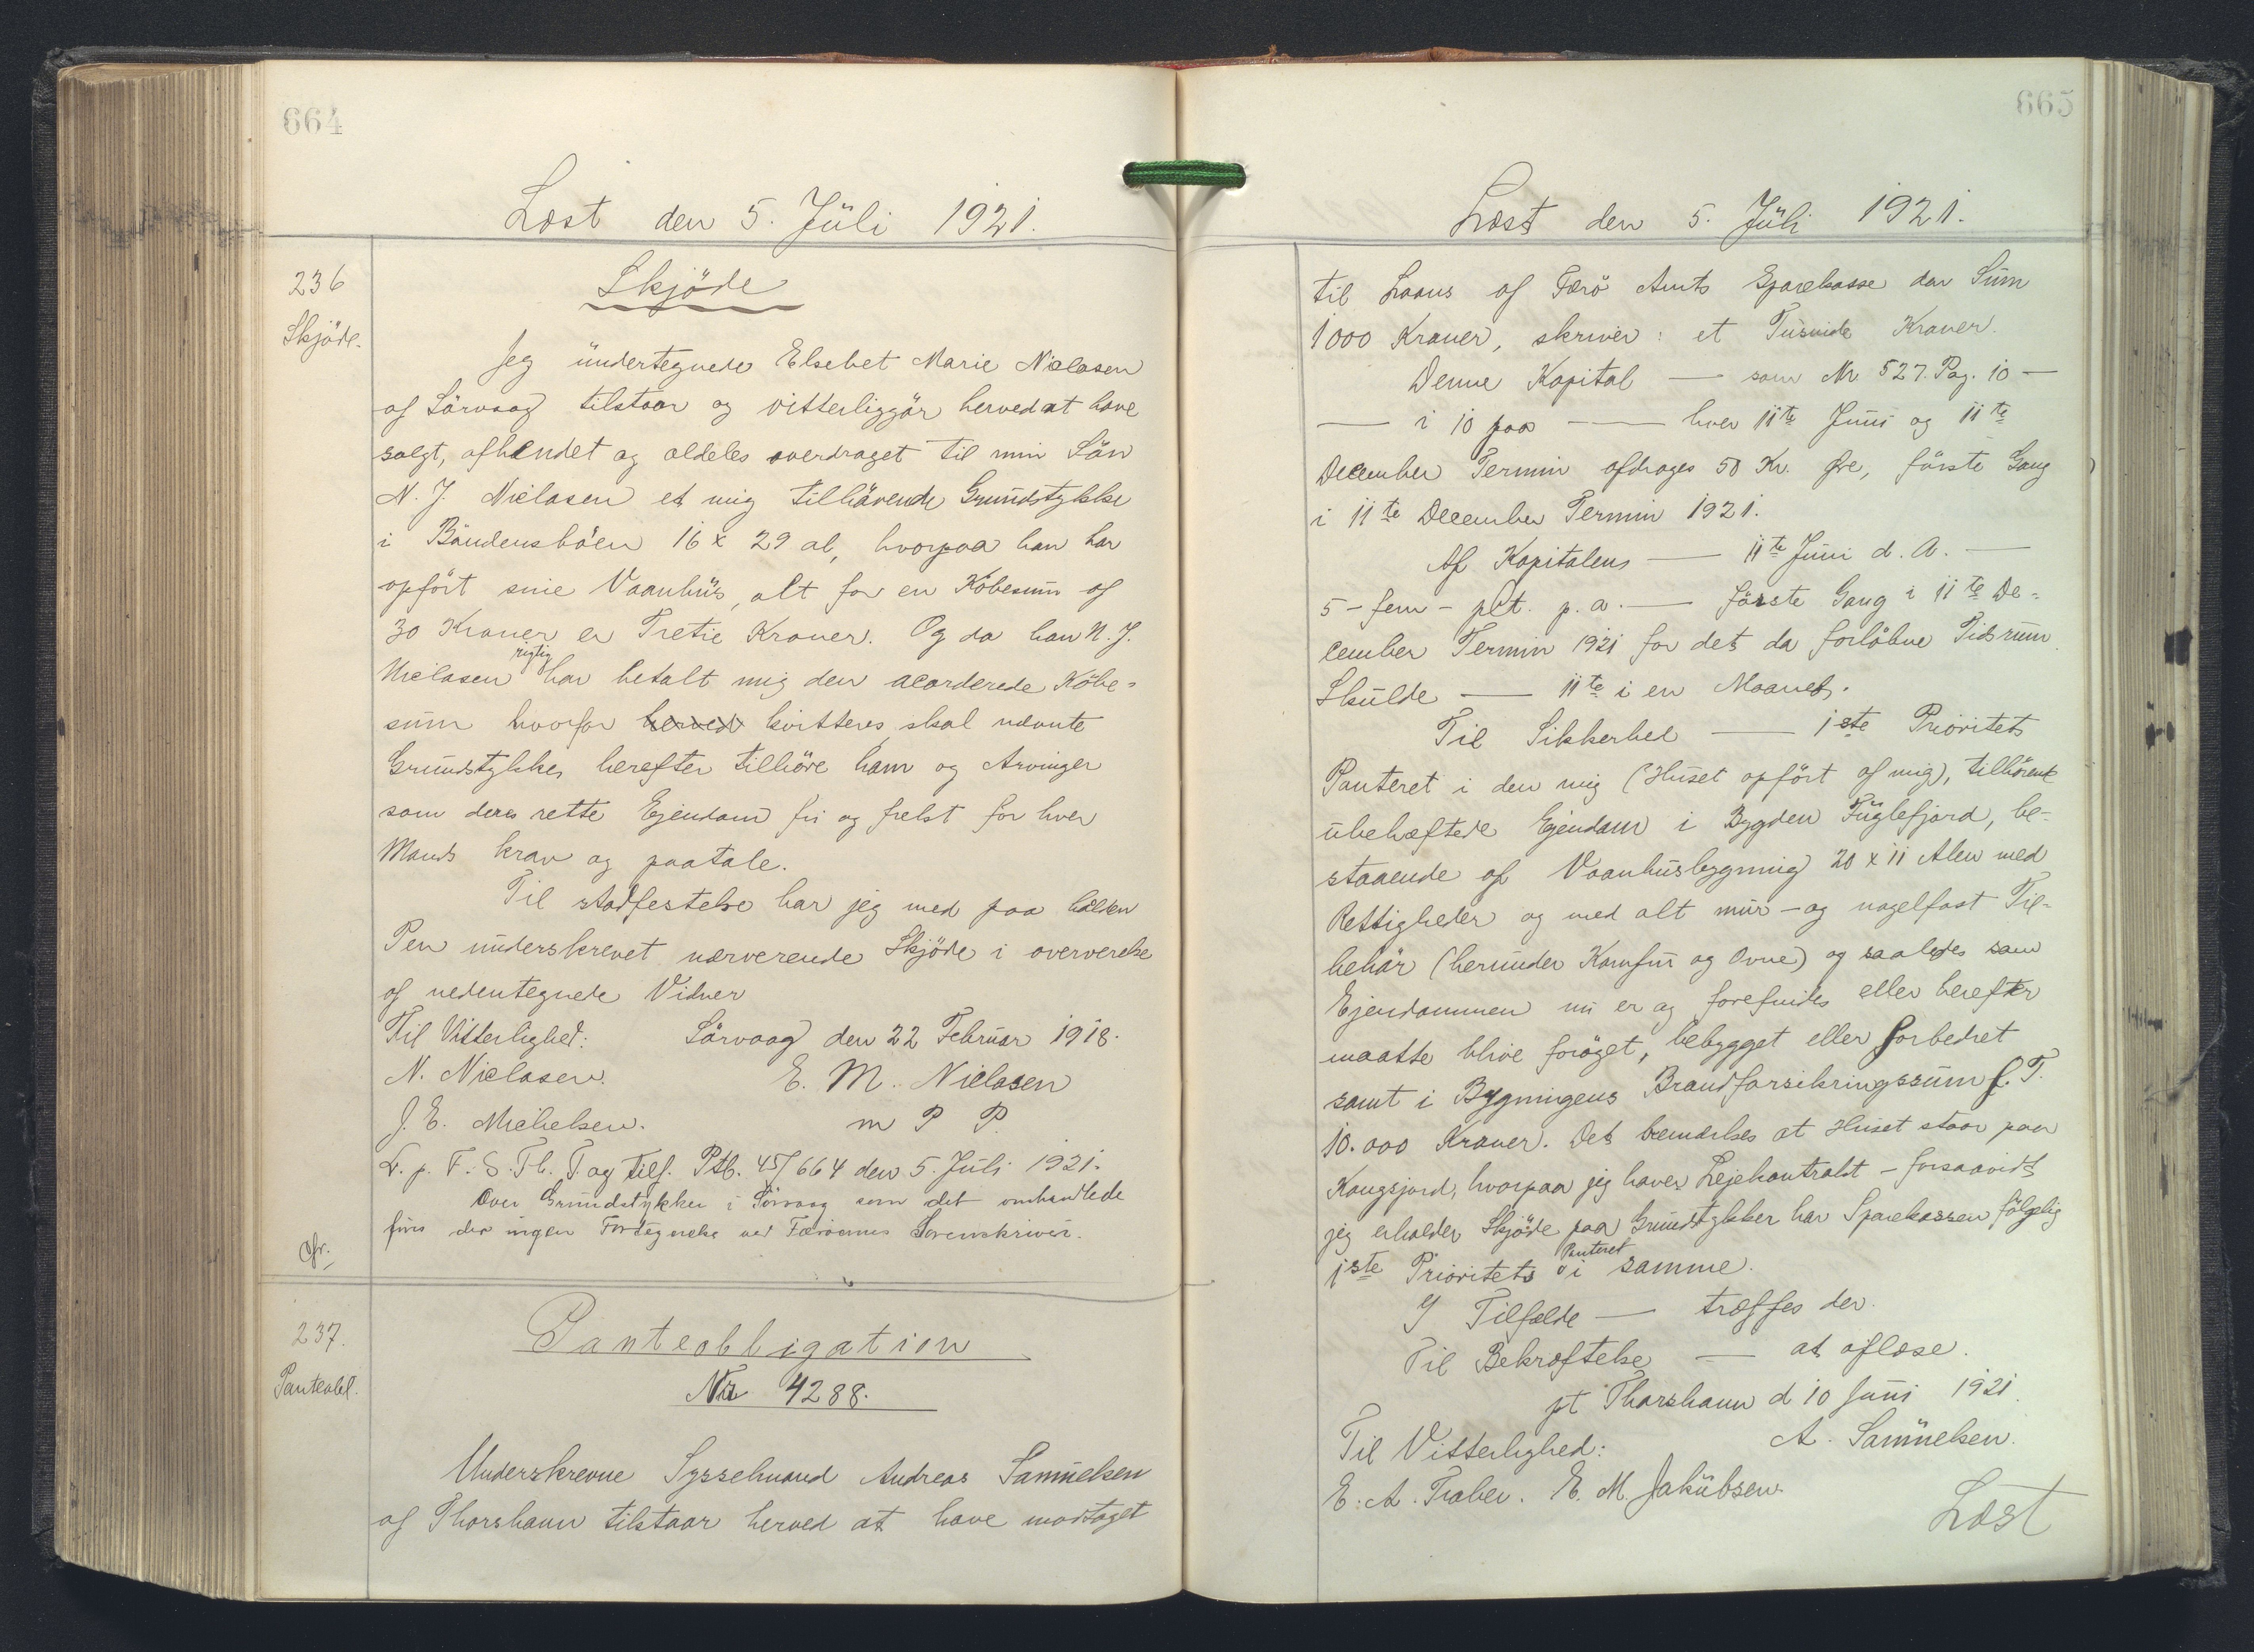 664
Læst den 5. Jüli 1921.
236
Skjöde.
Skjöde
Jeg ündertegnede Elsebet Marie Niclasen
af Sörvaag tilstaar og vitterliggör herved at have
solgt, afhendet og aldeles overdraget til min Sön
N. J. Niclasen et mig tilhörende Grundstykke
i Böndensböen 16 x 29 al, hvorpaa han har
opfört sine Vaanhüs, alt for en Köbesum af
30 Kroner er Tretie Kroner. Og da han N. J.
Niclasen rigtig har betalt mig den acorderede Köbe-
süm hvorfor herved kvitteres, skal nævnte
Grundstykke herefter tilhöre ham og Arvinger
som deres rette Ejendom fri og frelst for hver
Mands krav og paatale.
Til stadfestelse har jeg med paa holden
Pen ünderskrevet nærverende Skjöde i oververelse
af nedentegnede Vidner
Til Vitterlighed: Sörvaag den 22 Februar 1918.
N. Niclasen. E. M. Niclasen
J. E. Michelsen. m P P.
L. p. F. S. Th. T. og tilf. Ptb. 45/664 den 5. Jüli 1921.
Over Grundstykker i Sörvaag som det omhandlede
fins der ingen Fortegnelse ved Færöernes Sorenskriveri.
237.
Panteobl.
Panteobligation
Nr 4288.
Underskrevne Sysselmand Andreas Samüelsen
af Thorshavn tilstaar herved at have modtaget
665
Læst den 5. Jüli 1921.
til Laans af Færö Amts Sparekasse den Süm
1000 Kroner, skriver: et Tusinde Kroner.
Denne Kapital — som Nr. 527. Pag. 10 —
— i 10 paa — hver 11te Juni og 11te
December Termin afdrages 50 Kr. Øre, förste Gang
i 11te December Termin 1921.
Af Kapitalens — 11te Juni d. A. —
5 - fem - pCt. p. a. — förste Gang i 11te De-
cember Termin 1921 for det da forlöbne Tidsrum
Skulde — 11te i en Maaned.
Til Sikkerhed — 1ste Prioritets
Panteret i den mig (Huset opfört af mig), tilhörende
übehæftede Ejendom i Bygden Füglefjord, be-
staaende af Vaanhüsbygning 20 x 11 Alen med
Rettigheder og med alt mür- og nagelfast Til-
behör (heründer Komfur og Ovne) og saaledes som
Ejendommen nü er og forefindes eller herefter
maatte blive foröget, bebygget eller forbedret
samt i Bygningens Brandforsikringssum f. T.
10.000 Kroner. Det bemærkes at Huset staar paa
Kongsjord, hvorpaa jeg haver Lejekontrakt - forsaavidt
jeg erholder Skjöde paa Grundstykket har Sparekassen fölgelig
1ste Prioritets Panteret i samme.
I Tilfælde — træffes der.
Til Bekræftelse — at aflæse.
pt Thorshavn d 10 Juni 1921.
Til Vitterlighed: A. Samüelsen.
E. A. Traber. E. M. Jakübsen.
Læst